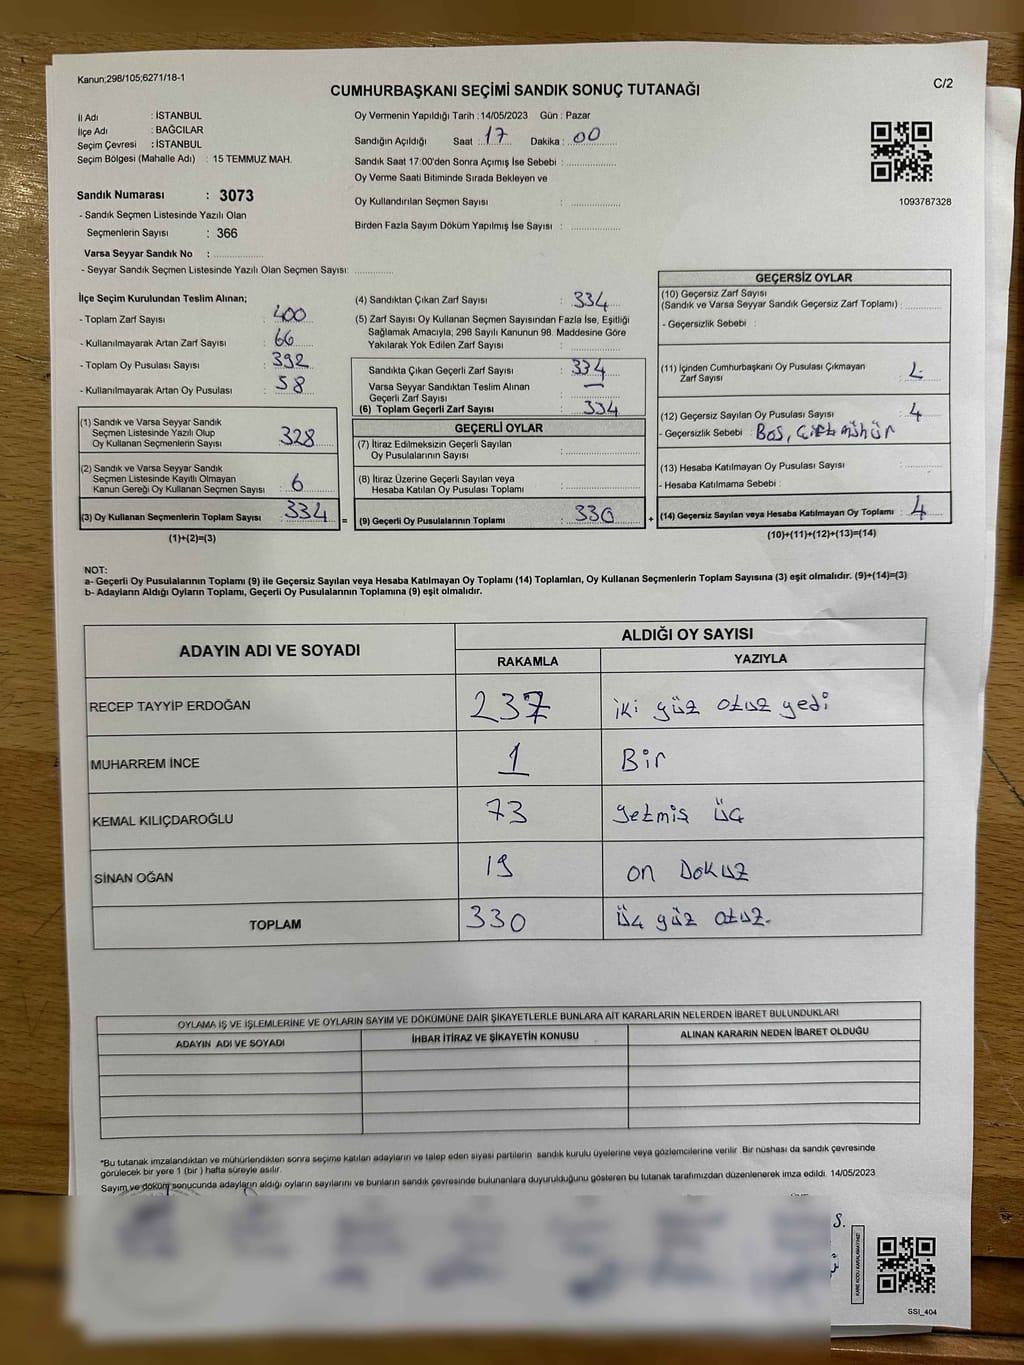 Kanun;298/105;6271/18-1
CUMHURBAŞKANI SEÇİMİ SANDIK SONUÇ TUTANAĞI
C/2
İl Adı : İSTANBUL
İlçe Adı : BAĞCILAR
Seçim Çevresi : İSTANBUL
Seçim Bölgesi (Mahalle Adı) : 15 TEMMUZ MAH.
Oy Vermenin Yapıldığı Tarih : 14/05/2023 Gün : Pazar
Sandığın Açıldığı Saat : 17 Dakika : 00
Sandık Saat 17:00'den Sonra Açımış İse Sebebi :
Oy Verme Saati Bitiminde Sırada Bekleyen ve
Oy Kullandırılan Seçmen Sayısı :
Birden Fazla Sayım Döküm Yapılmış İse Sayısı :
1093787328
Sandık Numarası : 3073
- Sandık Seçmen Listesinde Yazılı Olan
Seçmenlerin Sayısı : 366
Varsa Seyyar Sandık No :
- Seyyar Sandık Seçmen Listesinde Yazılı Olan Seçmen Sayısı:
İlçe Seçim Kurulundan Teslim Alınan;
- Toplam Zarf Sayısı : 400
- Kullanılmayarak Artan Zarf Sayısı : 66
- Toplam Oy Pusulası Sayısı : 392
- Kullanılmayarak Artan Oy Pusulası : 58
(1) Sandık ve Varsa Seyyar Sandık
Seçmen Listesinde Yazılı Olup
Oy Kullanan Seçmenlerin Sayısı 328
(2) Sandık ve Varsa Seyyar Sandık
Seçmen Listesinde Kayıtlı Olmayan
Kanun Gereği Oy Kullanan Seçmen Sayısı 6
(3) Oy Kullanan Seçmenlerin Toplam Sayısı 334 =
(1)+(2)=(3)
(4) Sandıktan Çıkan Zarf Sayısı : 334
(5) Zarf Sayısı Oy Kullanan Seçmen Sayısından Fazla İse, Eşitliği
Sağlamak Amacıyla, 298 Sayılı Kanunun 98. Maddesine Göre
Yakılarak Yok Edilen Zarf Sayısı :
Sandıkta Çıkan Geçerli Zarf Sayısı : 334
Varsa Seyyar Sandıktan Teslim Alınan
Geçerli Zarf Sayısı : —
(6) Toplam Geçerli Zarf Sayısı : 334
GEÇERLİ OYLAR
(7) İtiraz Edilmeksizin Geçerli Sayılan
Oy Pusulalarının Sayısı :
(8) İtiraz Üzerine Geçerli Sayılan veya
Hesaba Katılan Oy Pusulası Toplamı :
(9) Geçerli Oy Pusulalarının Toplamı : 330 +
GEÇERSİZ OYLAR
(10) Geçersiz Zarf Sayısı
(Sandık ve Varsa Seyyar Sandık Geçersiz Zarf Toplamı) :
- Geçersizlik Sebebi :
(11) İçinden Cumhurbaşkanı Oy Pusulası Çıkmayan
Zarf Sayısı :
(12) Geçersiz Sayılan Oy Pusulası Sayısı : 4
- Geçersizlik Sebebi : Boş, Çift mühür
(13) Hesaba Katılmayan Oy Pusulası Sayısı :
- Hesaba Katılmama Sebebi :
(14) Geçersiz Sayılan veya Hesaba Katılmayan Oy Toplamı : 4
(10)+(11)+(12)+(13)=(14)
NOT:
a- Geçerli Oy Pusulalarının Toplamı (9) ile Geçersiz Sayılan veya Hesaba Katılmayan Oy Toplamı (14) Toplamları, Oy Kullanan Seçmenlerin Toplam Sayısına (3) eşit olmalıdır. (9)+(14)=(3)
b- Adayların Aldığı Oyların Toplamı, Geçerli Oy Pusulalarının Toplamına (9) eşit olmalıdır.
ADAYIN ADI VE SOYADI
ALDIĞI OY SAYISI
RAKAMLA YAZIYLA
RECEP TAYYİP ERDOĞAN 237 iki yüz otuz yedi
MUHARREM İNCE 1 Bir
KEMAL KILIÇDAROĞLU 73 yetmiş üç
SİNAN OĞAN 19 on Dokuz
TOPLAM 330 üç yüz otuz.
OYLAMA İŞ VE İŞLEMLERİNE VE OYLARIN SAYIM VE DÖKÜMÜNE DAİR ŞİKAYETLERLE BUNLARA AİT KARARLARIN NELERDEN İBARET BULUNDUKLARI
ADAYIN ADI VE SOYADI İHBAR İTİRAZ VE ŞİKAYETİN KONUSU ALINAN KARARIN NEDEN İBARET OLDUĞU
*Bu tutanak imzalandıktan ve mühürlendikten sonra seçime katılan adayların ve talep eden siyasi partilerin sandık kurulu üyelerine veya gözlemcilerine verilir. Bir nüshası da sandık çevresinde
görülecek bir yere 1 (bir ) hafta süreyle asılır.
Sayım ve döküm sonucunda adayların aldığı oyların sayılarını ve bunların sandık çevresinde bulunanlara duyurulduğunu gösteren bu tutanak tarafımızdan düzenlenerek imza edildi. 14/05/2023
SSI_404